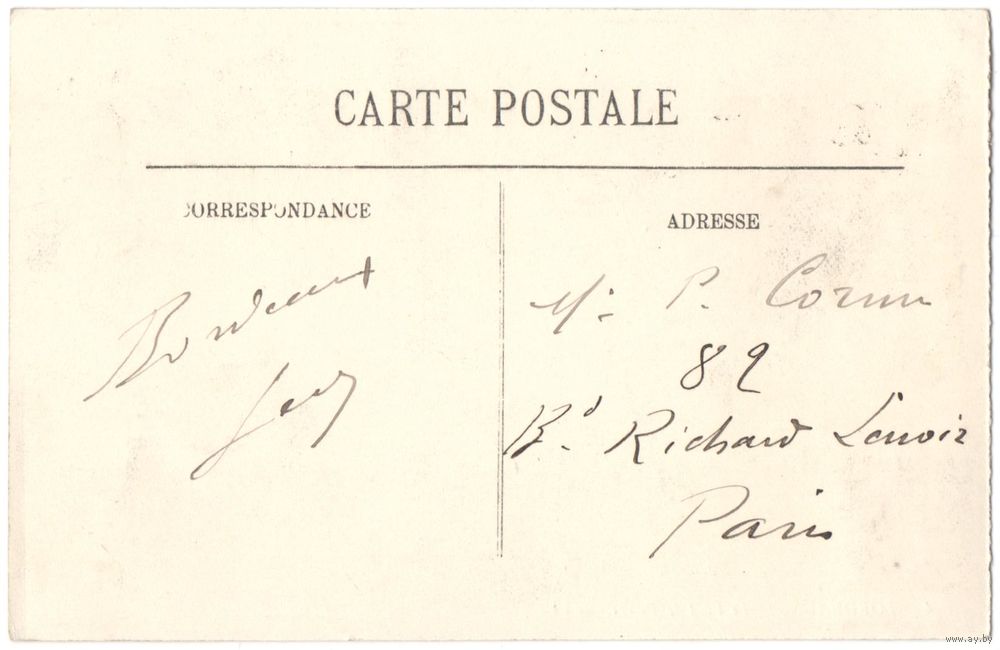 CARTE POSTALE
CORRESPONDANCE
Bordeaux
ADRESSE
Mr P.
82
Bd Richard Lenoir
Paris
www.ay.by